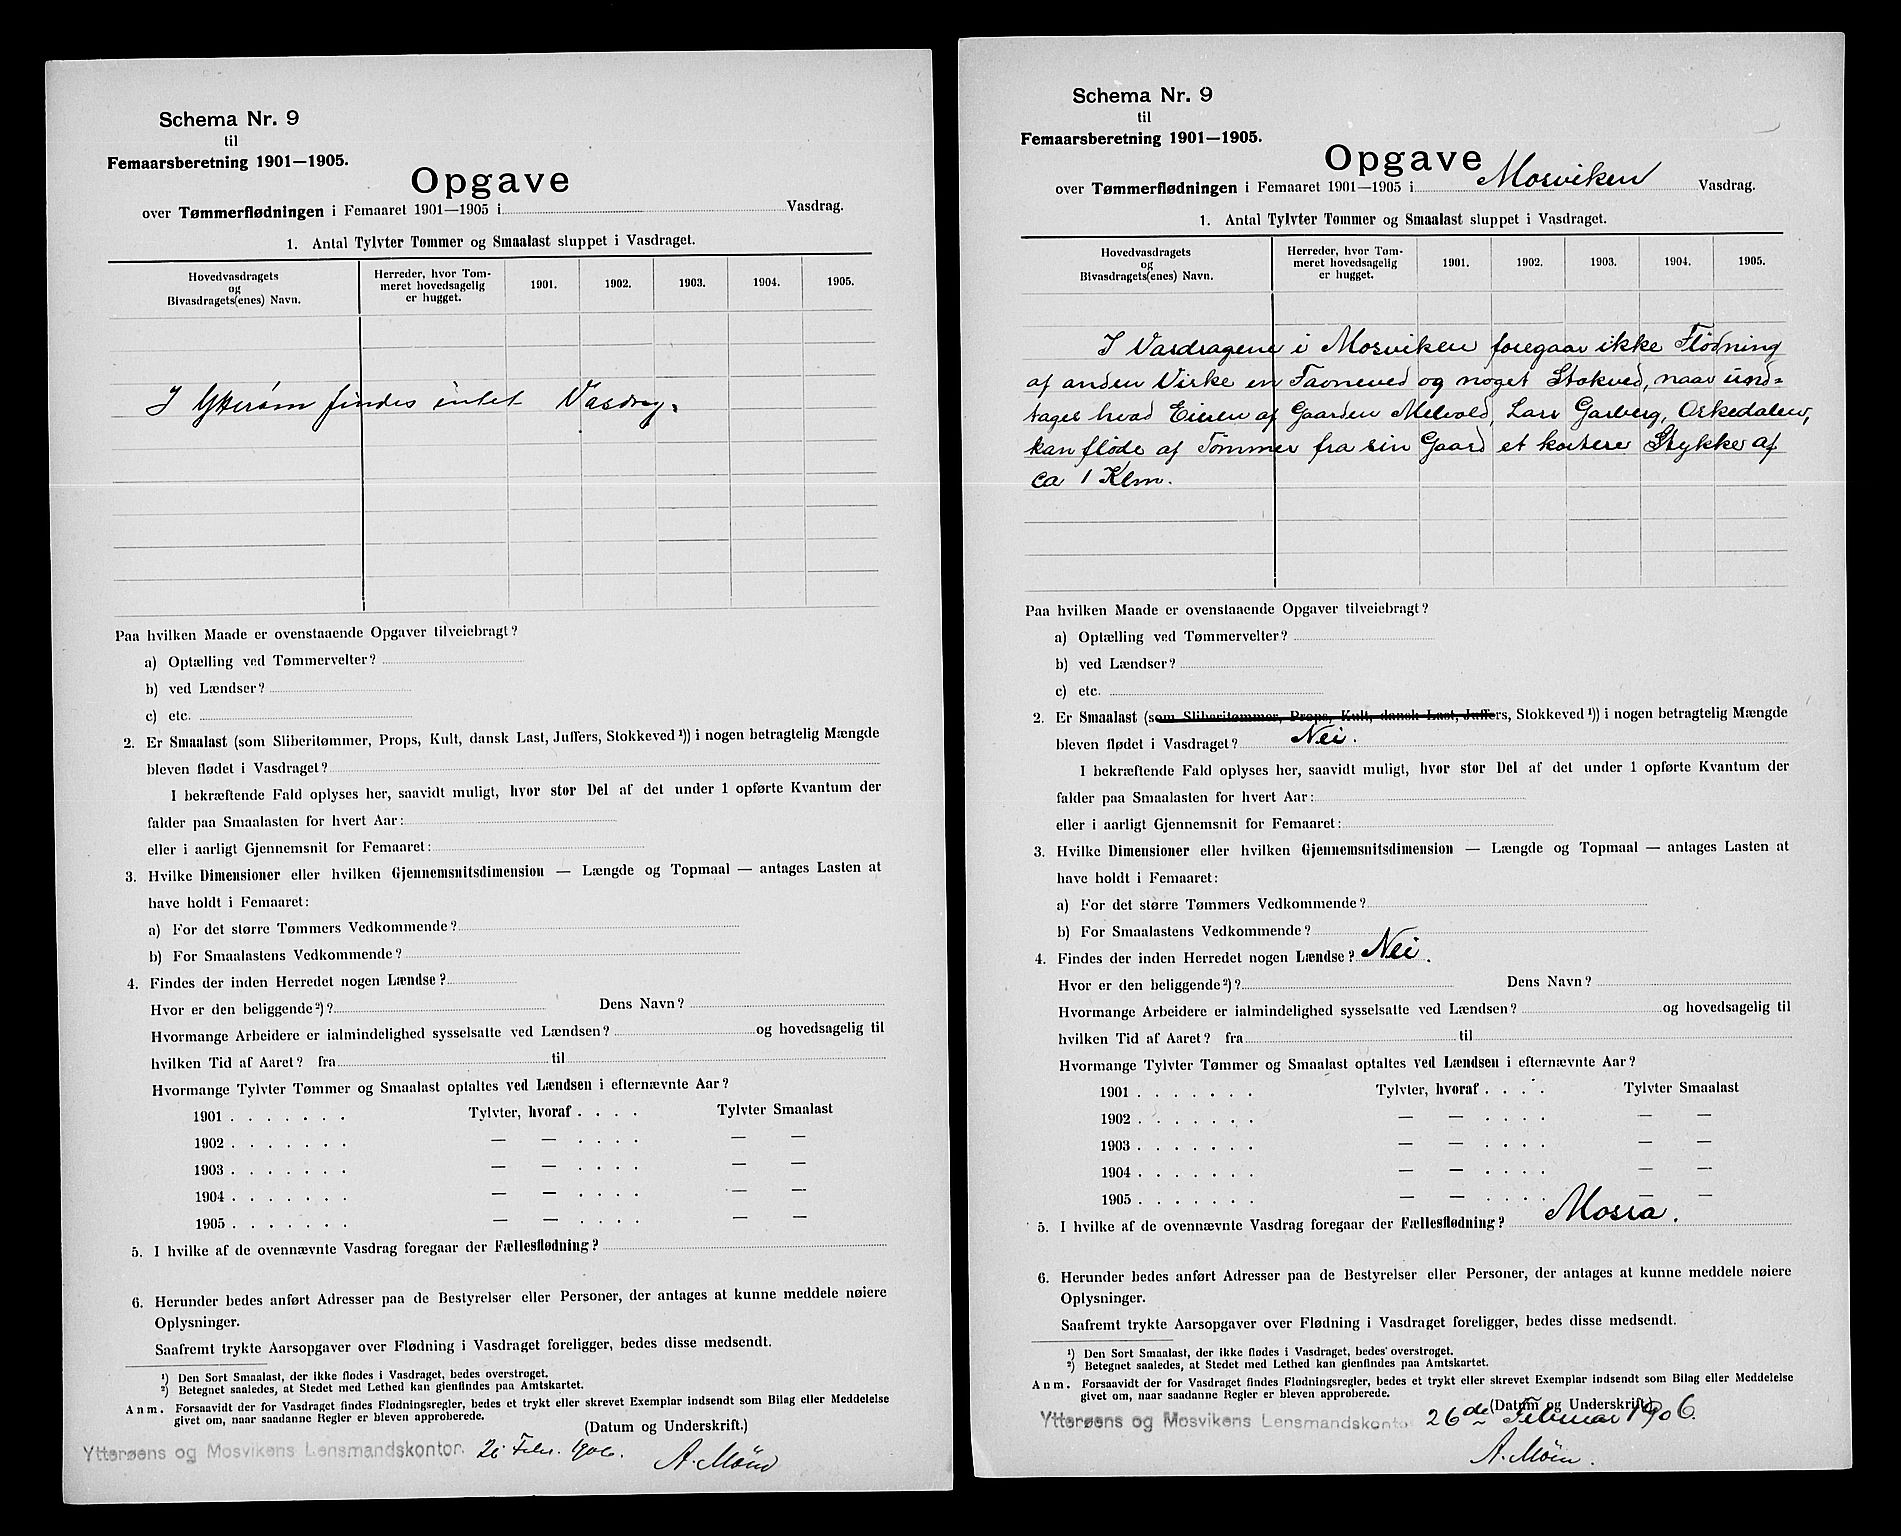 Schema Nr. 9
til
Femaarsberetning 1901—1905.
Opgave
over Tømmerflødningen i Femaaret 1901—1905 i Vasdrag.
1. Antal Tylvter Tømmer og Smaalast sluppet i Vasdraget.
Hovedvasdragets
og
Bivasdragets(enes) Navn.
Herreder, hvor Tøm-
meret hovedsagelig
er hugget.
1901. 1902. 1903. 1904. 1905.
I Ytterøen findes intet Vasdrag.
Paa hvilken Maade er ovenstaaende Opgaver tilveiebragt?
a) Optælling ved Tømmervelter?
b) ved Lændser?
c) etc.
2. Er Smaalast (som Sliberitømmer, Props, Kult, dansk Last, Juffers, Stokkeved ¹)) i nogen betragtelig Mængde
bleven flødet i Vasdraget?
I bekræftende Fald oplyses her, saavidt muligt, hvor stor Del af det under 1 opførte Kvantum der
falder paa Smaalasten for hvert Aar:
eller i aarligt Gjennemsnit for Femaaret:
3. Hvilke Dimensioner eller hvilken Gjennemsnitsdimension — Længde og Topmaal — antages Lasten at
have holdt i Femaaret:
a) For det større Tømmers Vedkommende?
b) For Smaalastens Vedkommende?
4. Findes der inden Herredet nogen Lændse?
Hvor er den beliggende²)? Dens Navn?
Hvormange Arbeidere er ialmindelighed sysselsatte ved Lændsen? og hovedsagelig til
hvilken Tid af Aaret? fra til
Hvormange Tylvter Tømmer og Smaalast optaltes ved Lændsen i efternævnte Aar?
1901 . . . . . . . Tylvter, hvoraf . . . . Tylvter Smaalast
1902 . . . . . . . — — . . . . — —
1903 . . . . . . . — — . . . . — —
1904 . . . . . . . — — . . . . — —
1905 . . . . . . . — — . . . . — —
5. I hvilke af de ovennævnte Vasdrag foregaar der Fællesflødning?
6. Herunder bedes anført Adresser paa de Bestyrelser eller Personer, der antages at kunne meddele nøiere
Oplysninger.
Saafremt trykte Aarsopgaver over Flødning i Vasdraget foreligger, bedes disse medsendt.
¹) Den Sort Smaalast, der ikke flødes i Vasdraget, bedes overstroget.
²) Betegnet saaledes, at Stedet med Lethed kan gienfindes paa Amtskartet.
Anm. Forsaavidt der for Vasdraget findes Flødningsregler, bedes et trykt eller skrevet Exemplar indsendt som Bilag eller Meddelelse
givet om, naar saadanne Regler er bleven approberede.
(Datum og Underskrift.)
Ytterøens og Mosvikens Lensmandskontor. 26 Febr. 1906.
A. Møin
Schema Nr. 9
til
Femaarsberetning 1901—1905.
Opgave
over Tømmerflødningen i Femaaret 1901—1905 i Mosviken Vasdrag.
1. Antal Tylvter Tømmer og Smaalast sluppet i Vasdraget.
Hovedvasdragets
og
Bivasdragets(enes) Navn.
Herreder, hvor Tøm-
meret hovedsagelig
er hugget.
1901. 1902. 1903. 1904. 1905.
I Vasdragene i Mosviken foregaar ikke Flödning
af anden Virke en Favneved og noget Stokved, naar und-
tages hvad Eieren af Gaarden Melvold, Lars Garberg, Orkedalen,
kan flöde af Tömmer fra sin Gaard et kortere Stykke af
ca 1 Klm.
Paa hvilken Maade er ovenstaaende Opgaver tilveiebragt?
a) Optælling ved Tømmervelter?
b) ved Lændser?
c) etc.
2. Er Smaalast (som Sliberitømmer, Props, Kult, dansk Last, Juffers, Stokkeved ¹)) i nogen betragtelig Mængde
bleven flødet i Vasdraget? Nei.
I bekræftende Fald oplyses her, saavidt muligt, hvor stor Del af det under 1 opførte Kvantum der
falder paa Smaalasten for hvert Aar:
eller i aarligt Gjennemsnit for Femaaret:
3. Hvilke Dimensioner eller hvilken Gjennemsnitsdimension — Længde og Topmaal — antages Lasten at
have holdt i Femaaret:
a) For det større Tømmers Vedkommende?
b) For Smaalastens Vedkommende?
4. Findes der inden Herredet nogen Lændse? Nei.
Hvor er den beliggende²)? Dens Navn?
Hvormange Arbeidere er ialmindelighed sysselsatte ved Lændsen? og hovedsagelig til
hvilken Tid af Aaret? fra til
Hvormange Tylvter Tømmer og Smaalast optaltes ved Lændsen i efternævnte Aar?
1901 . . . . . . . Tylvter, hvoraf . . . . Tylvter Smaalast
1902 . . . . . . . — — . . . . — —
1903 . . . . . . . — — . . . . — —
1904 . . . . . . . — — . . . . — —
1905 . . . . . . . — — . . . . — —
5. I hvilke af de ovennævnte Vasdrag foregaar der Fællesflødning? Mosra.
6. Herunder bedes anført Adresser paa de Bestyrelser eller Personer, der antages at kunne meddele nøiere
Oplysninger.
Saafremt trykte Aarsopgaver over Flødning i Vasdraget foreligger, bedes disse medsendt.
¹) Den Sort Smaalast, der ikke flødes i Vasdraget, bedes overstroget.
²) Betegnet saaledes, at Stedet med Lethed kan gienfindes paa Amtskartet.
Anm. Forsaavidt der for Vasdraget findes Flødningsregler, bedes et trykt eller skrevet Exemplar indsendt som Bilag eller Meddelelse
givet om, naar saadanne Regler er bleven approberede.
(Datum og Underskrift.)
Ytterøens og Mosvikens Lensmandskonto 26de Februar 1906.
A. Møin.